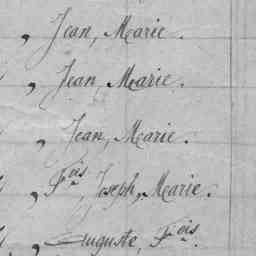 , Jean, Marie.
, Jean, Marie.
, Jean, Marie.
, Fois, Joseph, Marie.
, Auguste, Fois.